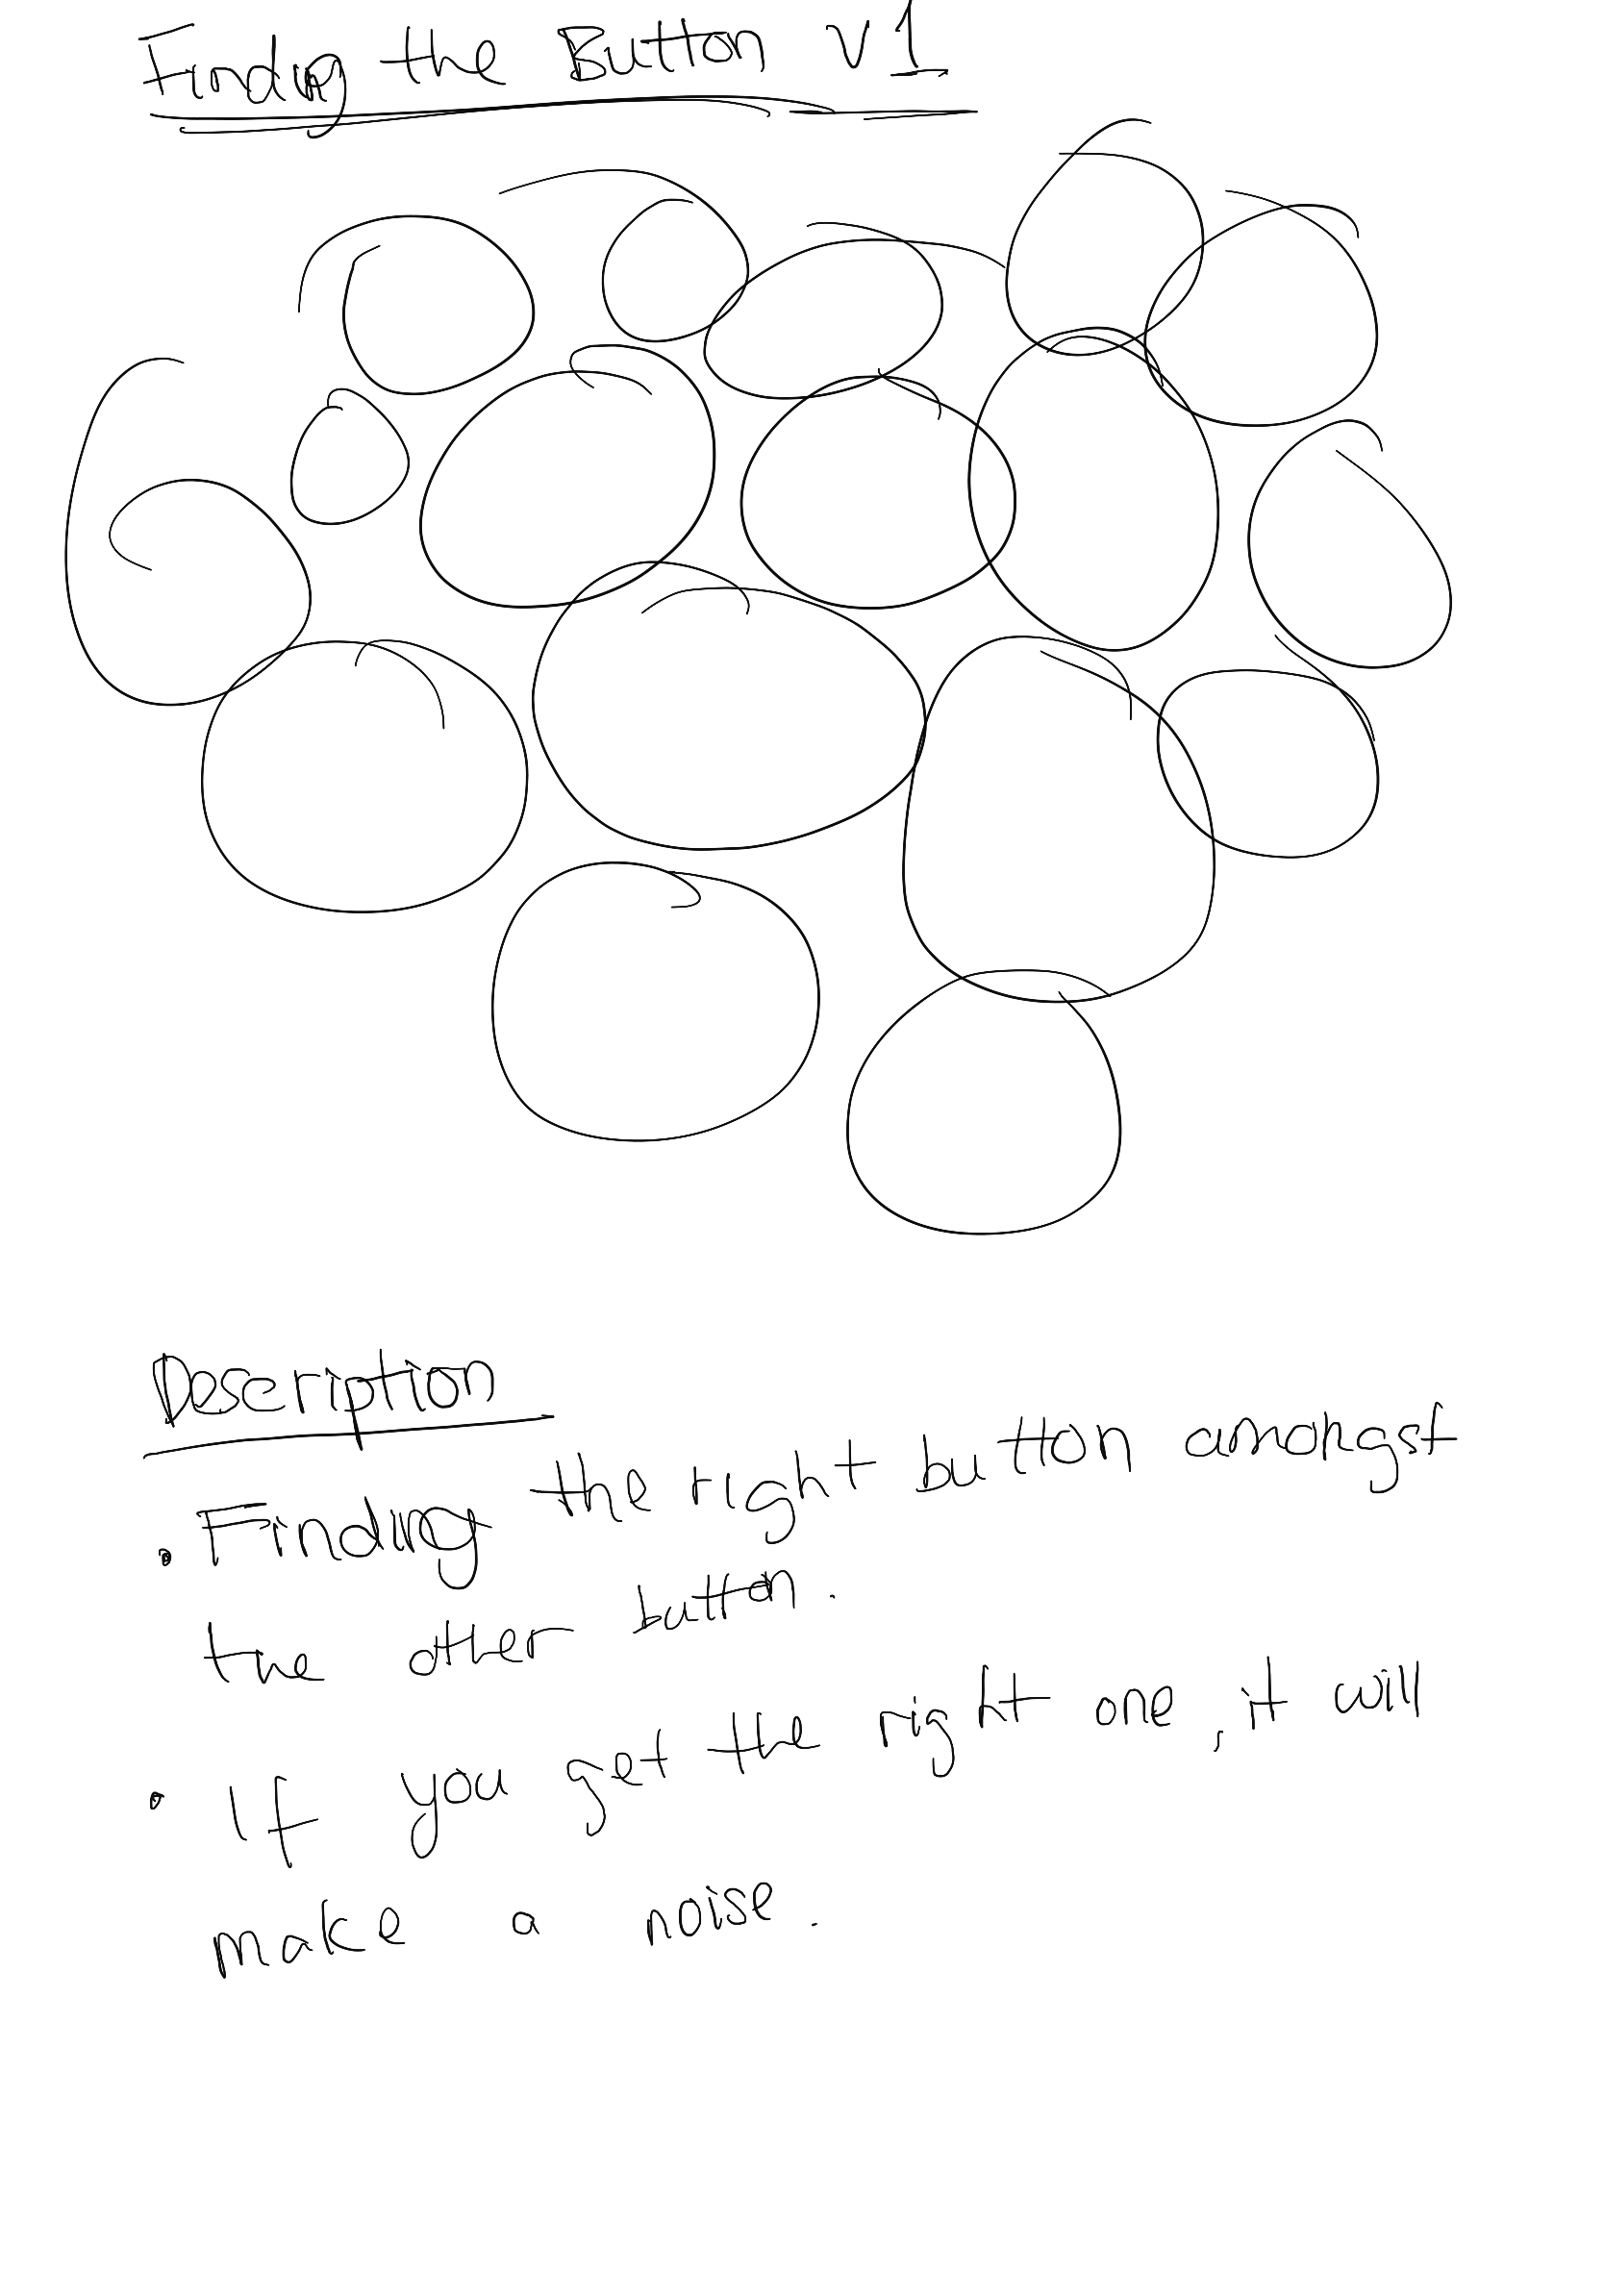 Finding the Button v1
Description
• Finding the right button amongst
the other button.
• If you get the right one, it will
make a noise.